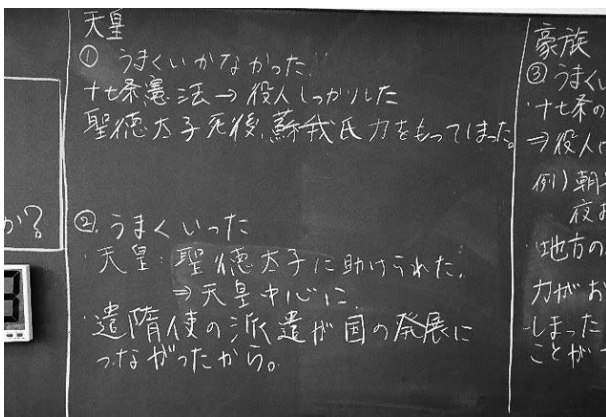 天皇
① うまくいかなかった。
十七条憲法→役人しっかりした
聖徳太子死後、蘇我氏力をもってしまった。
② うまくいった
・天皇：聖徳太子に助けられた。
⇒天皇中心に
・遣隋使の派遣が国の発展に
つながったから。
か？
豪族
③ うまくい
・十七条の
⇒役人に
例）朝早
夜お
・地方の
力がお
しまった
ことが